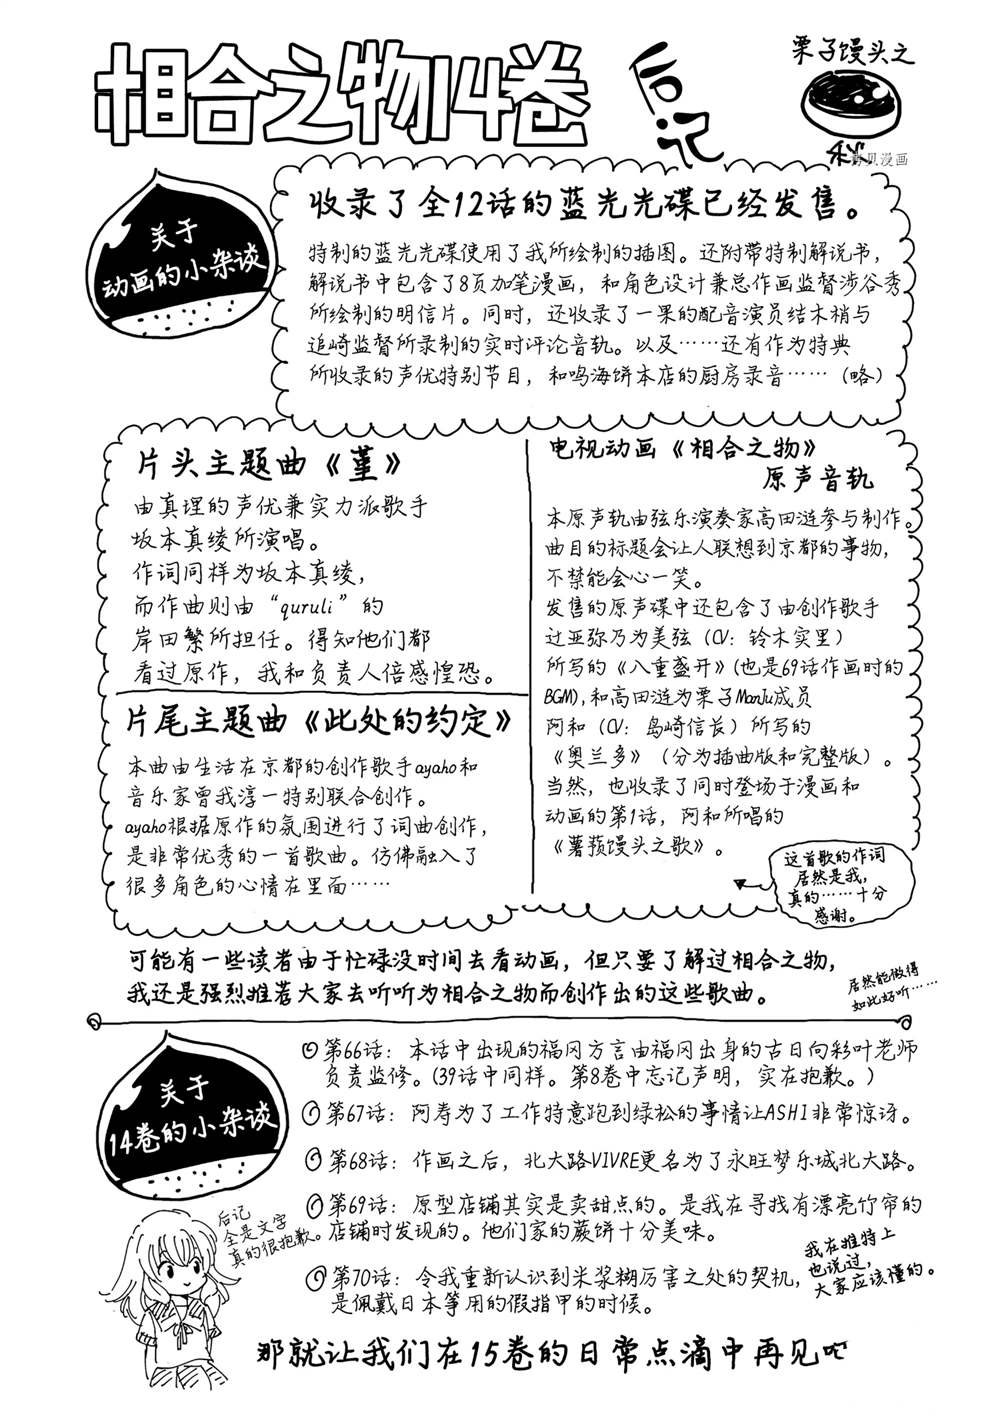 相合之物14卷
后记
栗子馒头之
秋
拷贝漫画
关于
动画的小杂谈
收录了全12话的蓝光光碟已经发售。
特制的蓝光光碟使用了我所绘制的插图。还附带特制解说书，
解说书中包含了8页加笔漫画，和角色设计兼总作画监督涉谷秀
所绘制的明信片。同时，还收录了一果的配音演员结木梢与
追崎监督所录制的实时评论音轨。以及……还有作为特典
所收录的声优特别节目，和鸣海饼本店的厨房录音……（略）
片头主题曲《堇》
由真理的声优兼实力派歌手
坂本真绫所演唱。
作词同样为坂本真绫，
而作曲则由“quruli”的
岸田繁所担任。得知他们都
看过原作，我和负责人倍感惶恐。
片尾主题曲《此处的约定》
本曲由生活在京都的创作歌手ayaho和
音乐家曾我淳一特别联合创作。
ayaho根据原作的氛围进行了词曲创作，
是非常优秀的一首歌曲。仿佛融入了
很多角色的心情在里面……
电视动画《相合之物》
原声音轨
本原声轨由弦乐演奏家高田涟参与制作。
曲目的标题会让人联想到京都的事物，
不禁能会心一笑。
发售的原声碟中还包含了由创作歌手
辻亚弥乃为美弦（CV：铃木实里）
所写的《八重盛开》(也是69话作画时的
BGM)，和高田涟为栗子ManJu成员
阿和（CV：岛崎信长）所写的
《奥兰多》（分为插曲版和完整版）。
当然，也收录了同时登场于漫画和
动画的第1话，阿和所唱的
《薯蓣馒头之歌》。
这首歌的作词
居然是我，
真的……十分
感谢。
可能有一些读者由于忙碌没时间去看动画，但只要了解过相合之物，
我还是强烈推荐大家去听听为相合之物而创作出的这些歌曲。
居然能做得
如此好听……
关于
14卷的小杂谈
第66话：本话中出现的福冈方言由福冈出身的古日向彩叶老师
负责监修。(39话中同样。第8卷中忘记声明，实在抱歉。)
第67话：阿寿为了工作特意跑到绿松的事情让ASHI非常惊讶。
第68话：作画之后，北大路VIVRE更名为了永旺梦乐城北大路。
第69话：原型店铺其实是卖甜点的。是我在寻找有漂亮竹帘的
店铺时发现的。他们家的蕨饼十分美味。
第70话：令我重新认识到米浆糊厉害之处的契机，
是佩戴日本筝用的假指甲的时候。
我在推特上
也说过，
大家应该懂的。
后记
全是文字
真的很抱歉。
那就让我们在15卷的日常点滴中再见吧